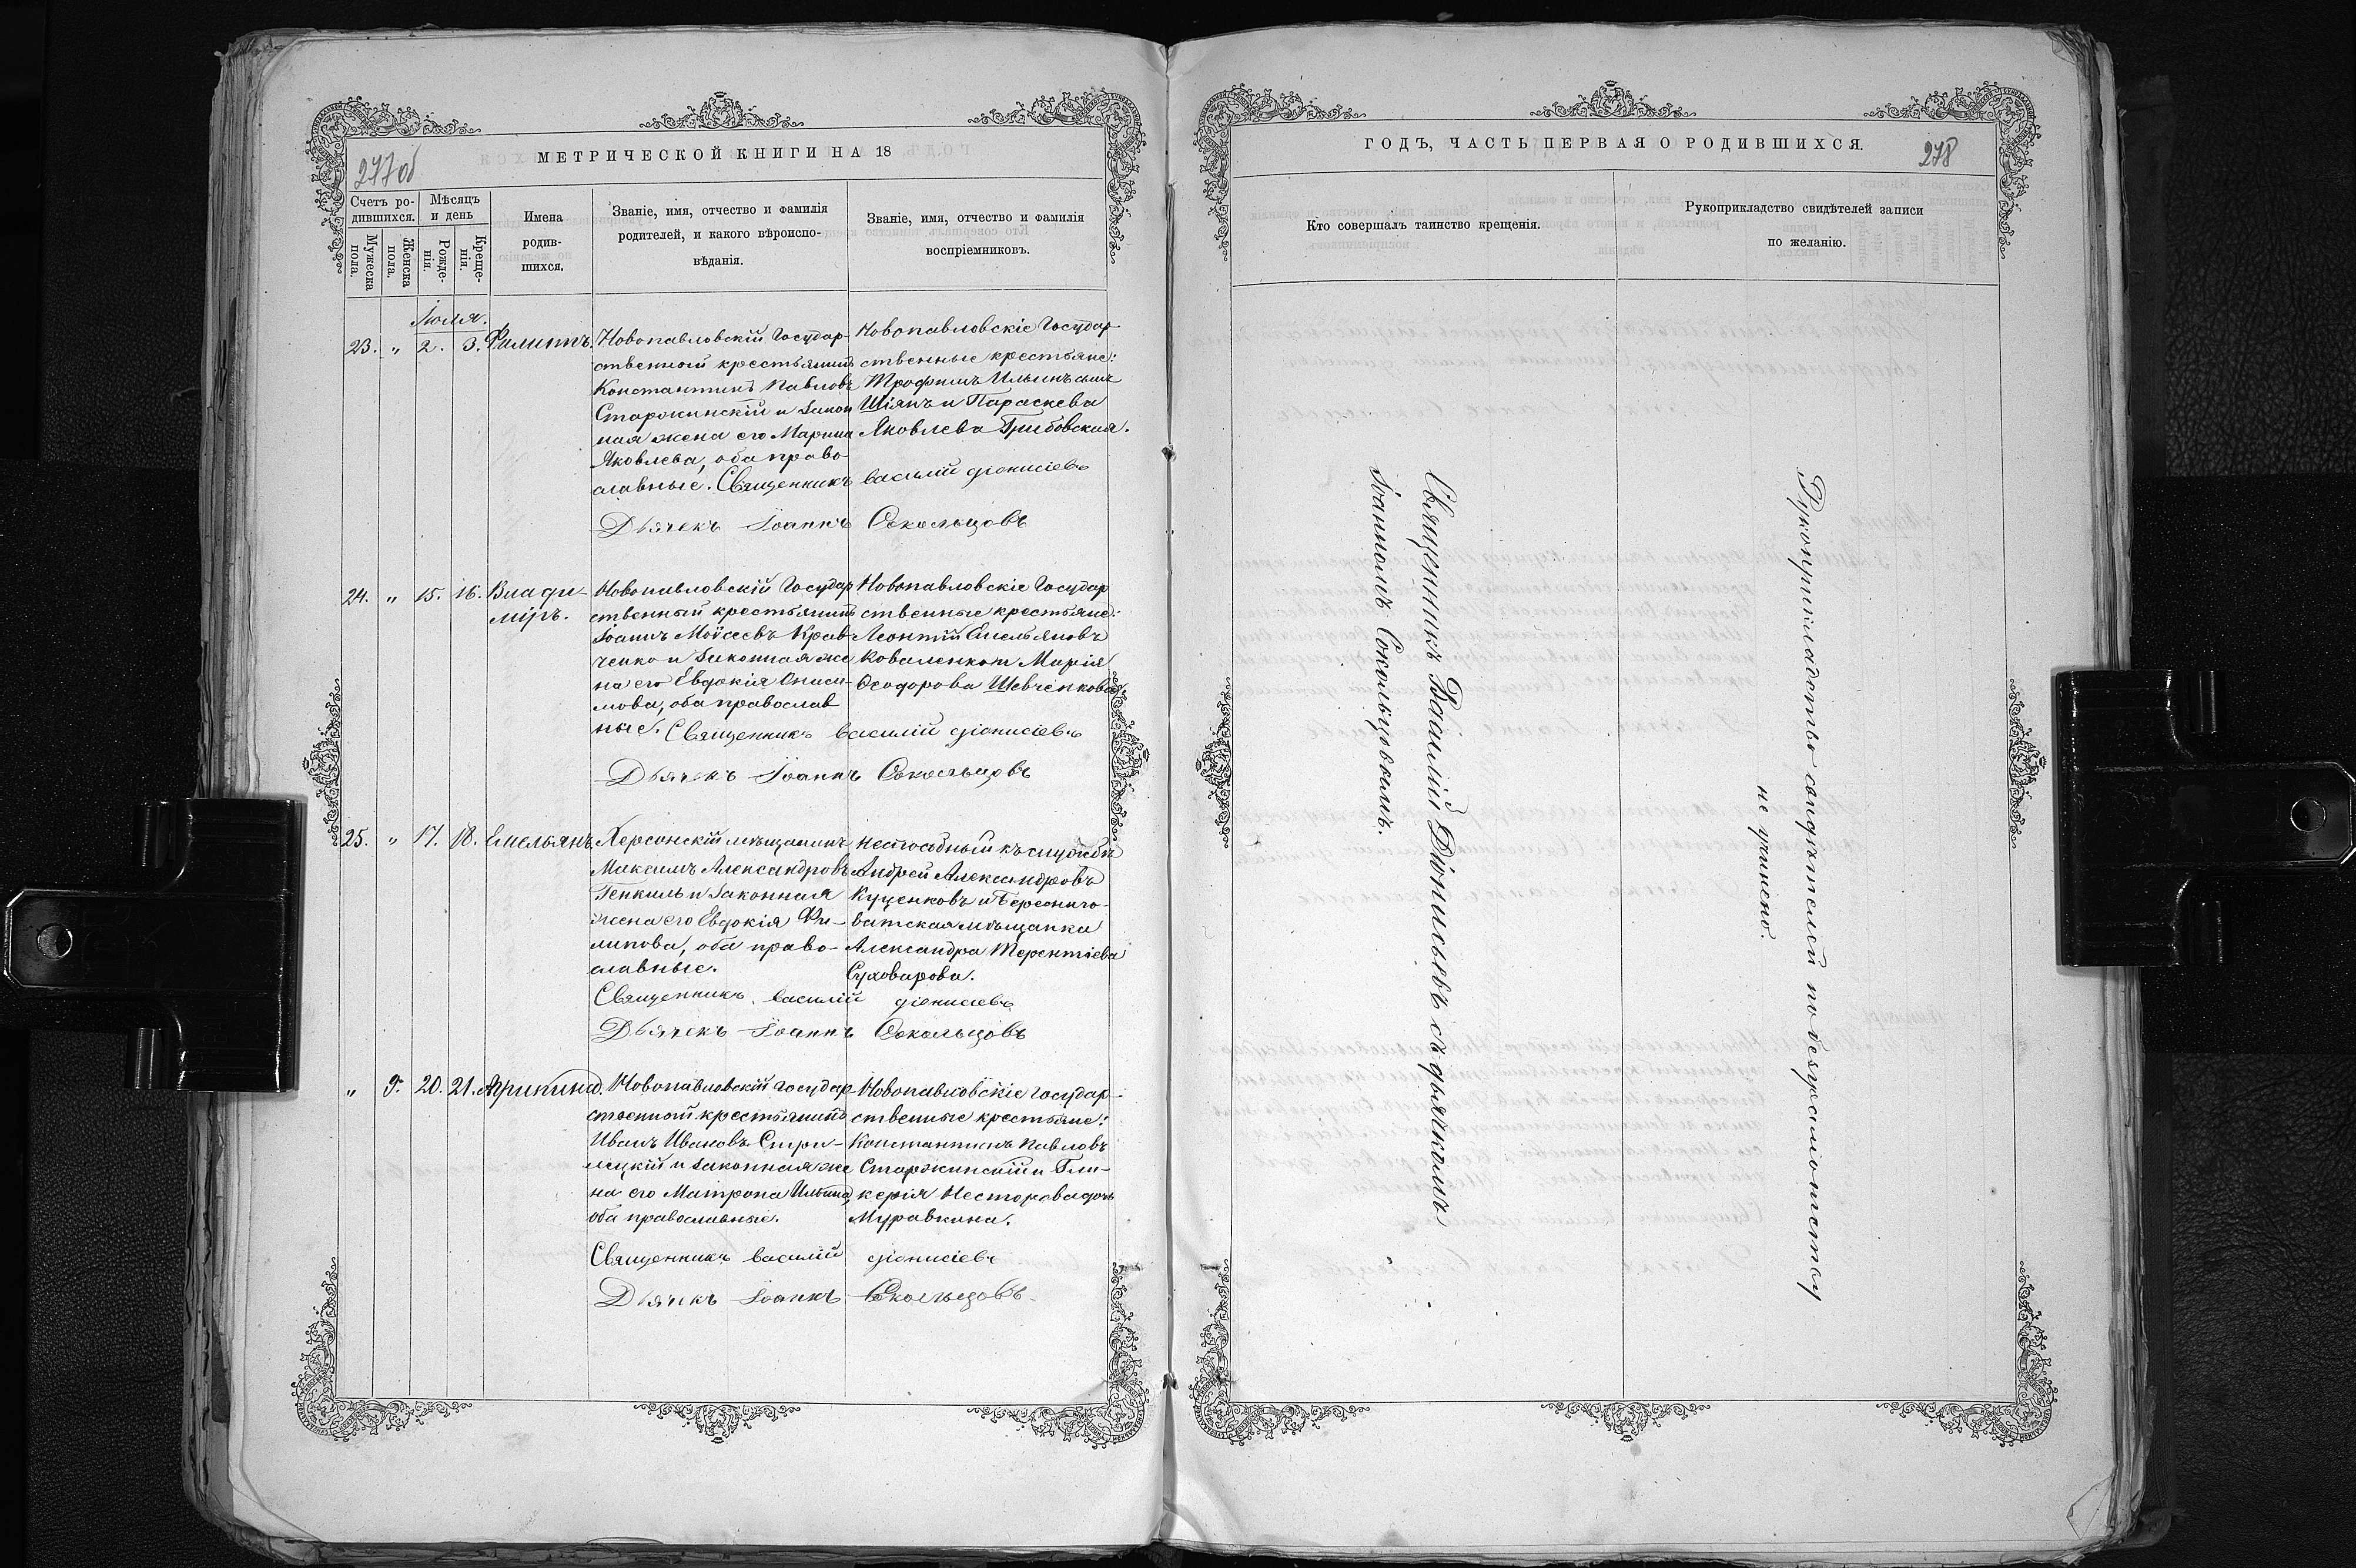 277об
МЕТРИЧЕСКОЙ КНИГИ НА 18
Счетъ ро-
дившихся.
Мужеска
пола.
Женска
пола.
Мѣсяцъ
и день
Рожде-
нія.
Креще-
нія.
Имена
родив-
шихся.
Званіе, имя, отчество и фамилія
родителей, и какого вѣроиспо-
вѣданія.
Званіе, имя, отчество и фамилія
воспріемниковъ.
Іюля.
23. " 2. 3. Филиппъ.
Новопавловскій Государ-
ственный крестьянинъ
Константинъ Павловъ
Старжинскій и закон
ная жена его Марина
Яковлева, оба право-
славные.
Новопавловскіе Государ-
ственные крестьяне:
Трофимъ Ильинъ сынъ
Шіянъ и Параскева
Яковлева Грибовская.
Священникъ Василій Діонисіевъ
Дьячекъ Іоаннъ Сокольцовъ
24. " 15. 16. Влади-
міръ.
Новопавловскій Государ
ственный крестьянинъ
Іоаннъ Моѵсеевъ Крав-
ченко и законная же
на его ЕвдокіяОниси-
мова, оба православ
ные.
Новопавловскіе Государ
ственные крестьяне:
Леонтій Емельяновъ
Коваленко и Марія
Ѳеодорова Шевченкова.
Священникъ Василій Діонисіевъ
Дьячекъ Іоаннъ Сокольцовъ
25. " 17. 18. Емельянъ.
Херсонскій мѣщанинъ
Максимъ Александровъ
Генкиль и законная
жена его Евдокія Фи-
липова, оба право-
славные.
Неспособный къ службѣ
Андрей Александровъ
Куценковъ и Береснего-
ватская мѣщанка
Александра Терентіева
Суховарова.
Священникъ Василій Діонисіевъ
Дьячекъ Іоаннъ Сокольцовъ
" 9. 20. 21. Агрипина.
Новопавловскій государ-
ственный крестьянинъ
Иванъ Ивановъ Стри-
лецкій и законная же
на его Матрона Ильина,
оба православные.
Новопавловскіе государ-
ственные крестьяне:
Константинъ Павловъ
Старжинскій и Гли-
керія Несторова дочь
Муравкина.
Священникъ Василій Діонисіевъ
Дьячекъ Іоаннъ Сокольцовъ
ГОДЪ, ЧАСТЬ ПЕРВАЯ О РОДИВШИХСЯ.
278
Кто совершалъ таинство крещенія.
Рукоприкладство свидѣтелей записи
по желанію.
Священникъ Василій Діонисьевъ съ дьякомъ
Іоанномъ Сокольцовымъ.
Рукоприкладство свидѣтелей по безграмотству
не учинено.